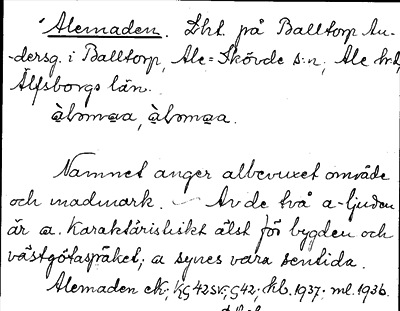 Alemaden. Lht. på Balltorp An-
dersg. i Balltorp, Ale-Skövde s:n, Ale hd,
Älfsborgs län.
Namnet anger albevuxet område
och madmark. — Av de två a-ljuden
är ɑ. Karaktäristiskt älst för bygden och
västgötaspråket; a synes vara sentida.
Alemaden ek; kg 42 SV; G 42; hkb. 1937; ml. 1936.